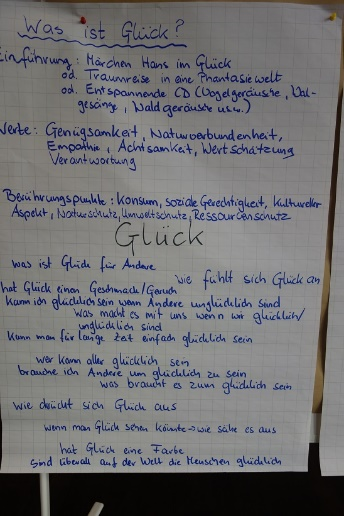 Was ist Glück?
Einführung: Märchen Hans im Glück
od. Traumreise in eine Phantasiewelt
od. Entspannende CD (Vogelgeräusche, Wal-
gesänge, Waldgeräusche usw.)
Werte: Genügsamkeit, Naturverbundenheit,
Empathie, Achtsamkeit, Wertschätzung
Verantwortung
Berührungspunkte: Konsum, soziale Gerechtigkeit, Kultureller
Aspekt, Naturschutz, Umweltschutz, Ressourcenschutz
Glück
was ist Glück für Andere
wie fühlt sich Glück an
hat Glück einen Geschmack/Geruch
kann ich glücklich sein wenn Andere unglücklich sind
was macht es mit uns wenn wir glücklich/
unglücklich sind
kann man für lange Zeit einfach glücklich sein
wer kann aller glücklich sein
brauche ich Andere um glücklich zu sein
was braucht es zum glücklich sein
wie drückt sich Glück aus
wenn man Glück sehen könnte → wie sähe es aus
hat Glück eine Farbe
Sind überall auf der Welt die Menschen glücklich